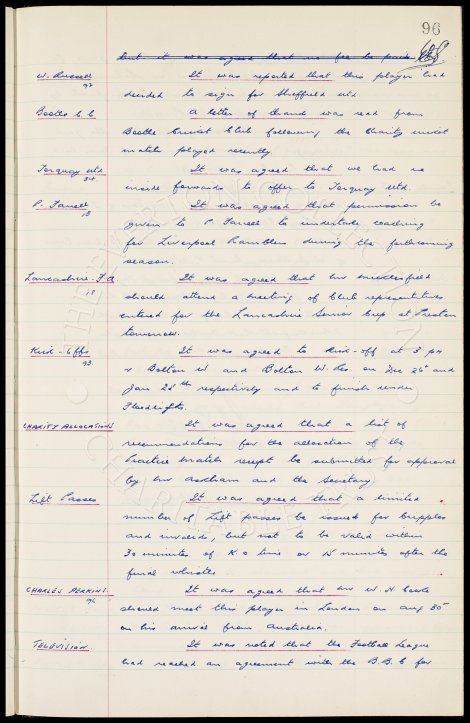 96
but it was agreed that no fee be paid
W. Russell It was reported that this player had
92
decided to sign for Sheffield Utd.
Bootle C.C. A letter of thanks was read from
Bootle Cricket Club following the Charity cricket
match played recently.
Torquay Utd It was agreed that we had no
84
inside forwards to offer to Torquay Utd.
P. Farrell It was agreed that permission be
given to P. Farrell to undertake coaching
for Liverpool Ramblers during the forthcoming
season.
Lancashire F.A. It was agreed that Mr
18
should attend a meeting of Club representatives
entered for the Lancashire Senior Cup at Preston
tomorrow.
Kick-offs It was agreed to kick-off at 3 pm
93
v Bolton W and Bolton W. Res on Dec 26th and
Jan 28th respectively and to finish under
Floodlights.
CHARITY ALLOCATIONS It was agreed that a list of
recommendations for the allocation of the
Practice Match receipt be submitted for approval
by Mr and the Secretary.
Lift Passes It was agreed that a limited
number of Lift passes be issued for Cripples
and invalids, but not to be valid within
30 minutes of K.O time or 15 minutes after the
final whistle.
CHARLES PERKINS. It was agreed that Mr W. H.
94
should meet this player in London on Aug
on his arrival from Australia.
TELEVISION. It was noted that the Football League
had reached an agreement with the B.B.C for